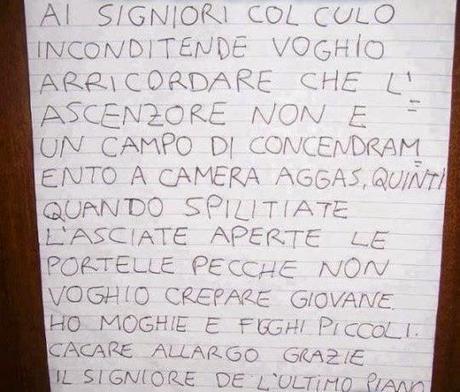 AI SIGNIORI COL CULO
INCONDITENDE VOGHIO
ARRICORDARE CHE L'
ASCENZORE NON E
UN CAMPO DI CONCENDRAM=
ENTO A CAMERA AGGAS, QUINTI
QUANDO SPILITIATE
L'ASCIATE APERTE LE
PORTELLE PECCHE NON
VOGHIO CREPARE GIOVANE.
HO MOGHIE E FIGGHI PICCOLI.
CACARE ALLARGO GRAZIE
IL SIGNIORE DE L'ULTIMO PIANO